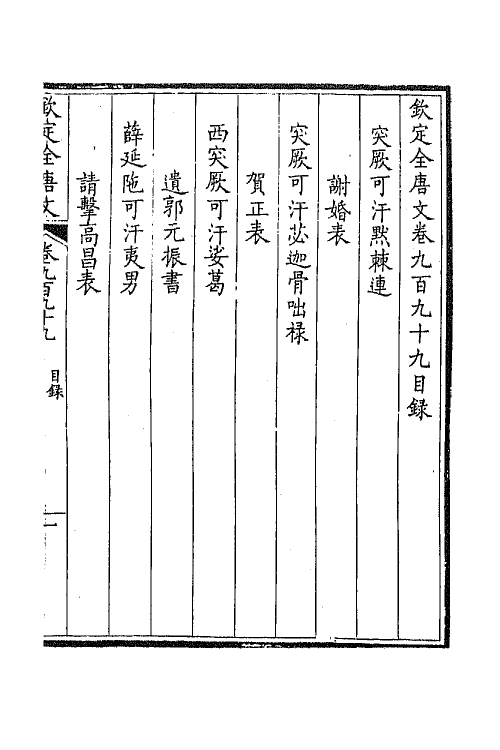 欽定全唐文卷九百九十九目録
突厥可汗黙棘連
謝婚表
突厥可汗苾迦骨咄禄
賀正表
西突厥可汗娑葛
遺郭元振書
薛延陁可汗夷男
請擊高昌表
欽定全唐文
卷九百九十九
目録
一